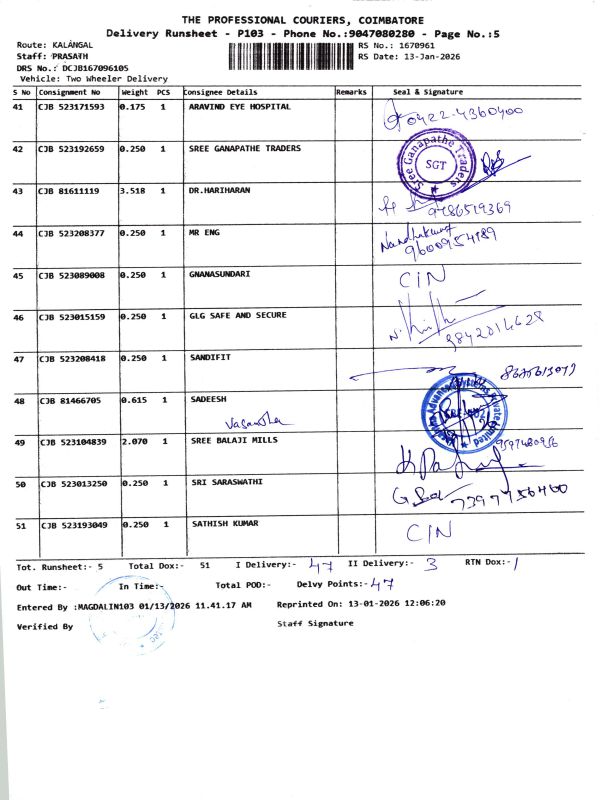 THE PROFESSIONAL COURIERS, COIMBATORE
Delivery Runsheet - P103 - Phone No.:9047080280 - Page No.:5
Route: KALANGAL
RS No.: 1670961
Staff: PRASATH
RS Date: 13-Jan-2026
DRS No.: DCJB167096105
Vehicle: Two Wheeler Delivery
S No Consignment No Weight PCS Consignee Details Remarks Seal & Signature
41 CJB 523171593 0.175 1 ARAVIND EYE HOSPITAL
0422-4360400
42 CJB 523192659 0.250 1 SREE GANAPATHE TRADERS
Sree Ganapathe Traders
SGT
43 CJB 81611119 3.518 1 DR.HARIHARAN
9786519369
44 CJB 523208377 0.250 1 MR ENG
Nandhakumar
9600954189
45 CJB 523089008 0.250 1 GNANASUNDARI
C/N
46 CJB 523015159 0.250 1 GLG SAFE AND SECURE
9842014628
47 CJB 523208418 0.250 1 SANDIFIT
48 CJB 81466705 0.615 1 SADEESH
Vasantha
49 CJB 523104839 2.070 1 SREE BALAJI MILLS
9597480956
50 CJB 523013250 0.250 1 SRI SARASWATHI
51 CJB 523193049 0.250 1 SATHISH KUMAR
C/N
Tot. Runsheet:- 5 Total Dox:- 51 I Delivery:- 47 II Delivery:- 3 RTN Dox:- 1
Out Time:- In Time:- Total POD:- Delvy Points:- 47
Entered By :MAGDALIN103 01/13/2026 11.41.17 AM Reprinted On: 13-01-2026 12:06:20
Verified By Staff Signature